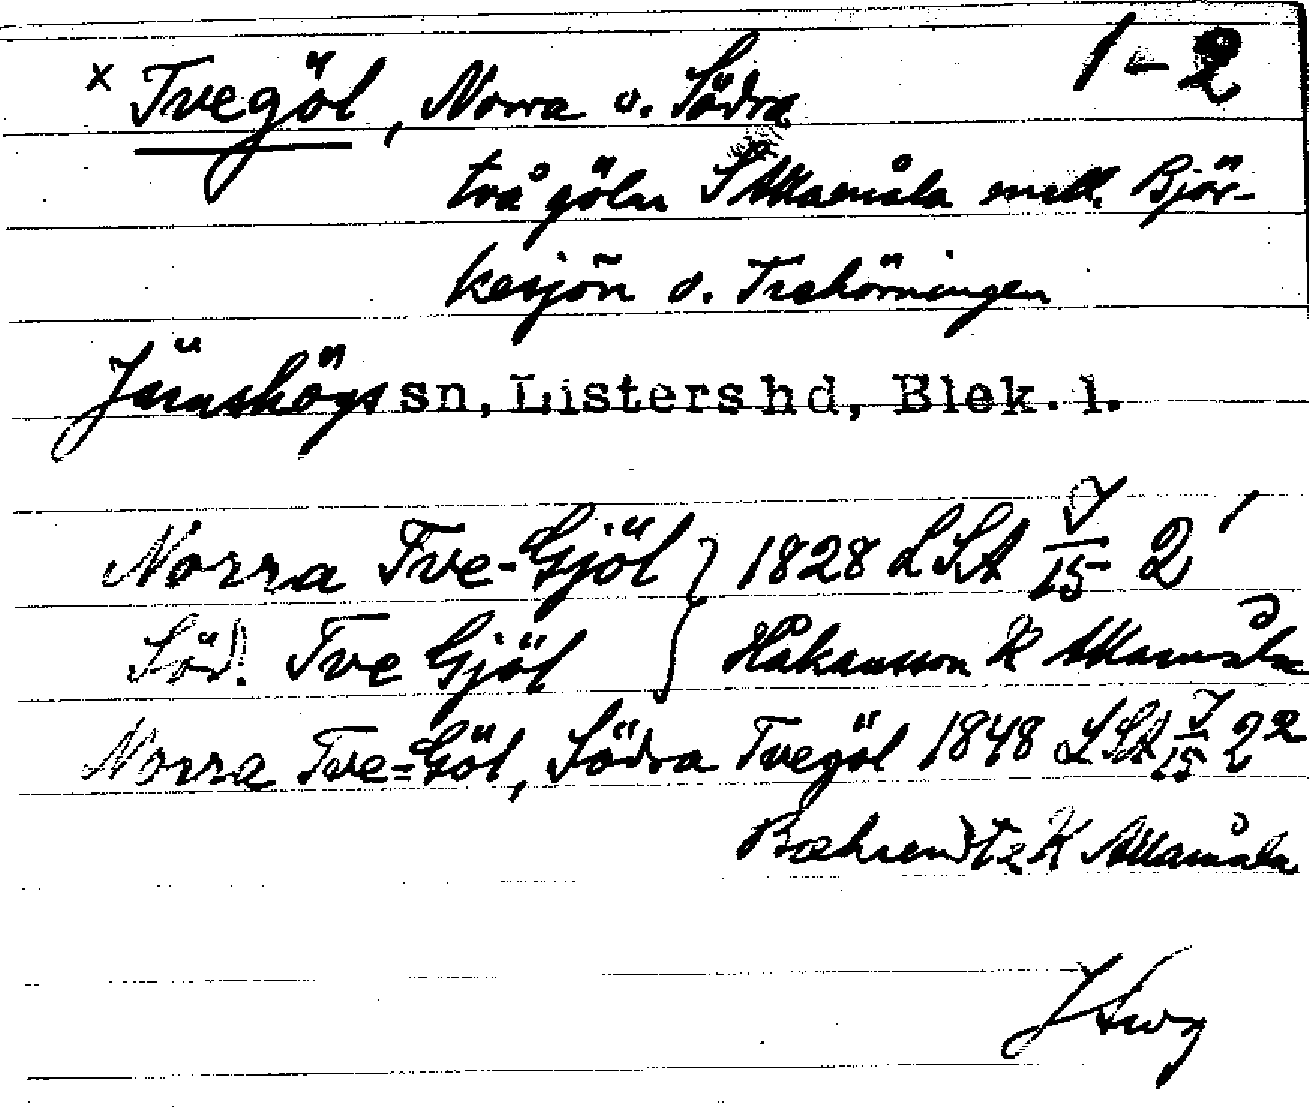 x Tvegöl, Norra o. Södra 1-2
två gölar S Alltemåla mell. Björ-
kesjön o. Trehörningen
Jämshögs sn, Listers hd, Blek. l.
Norra Tve-Gjöl } 1828 LSA J/15 2¹
Söd. Tve Gjöl } Håkansson K
Norra Tve=Göl, Södra Tvegöl 1848 LSA J/15 2²
K